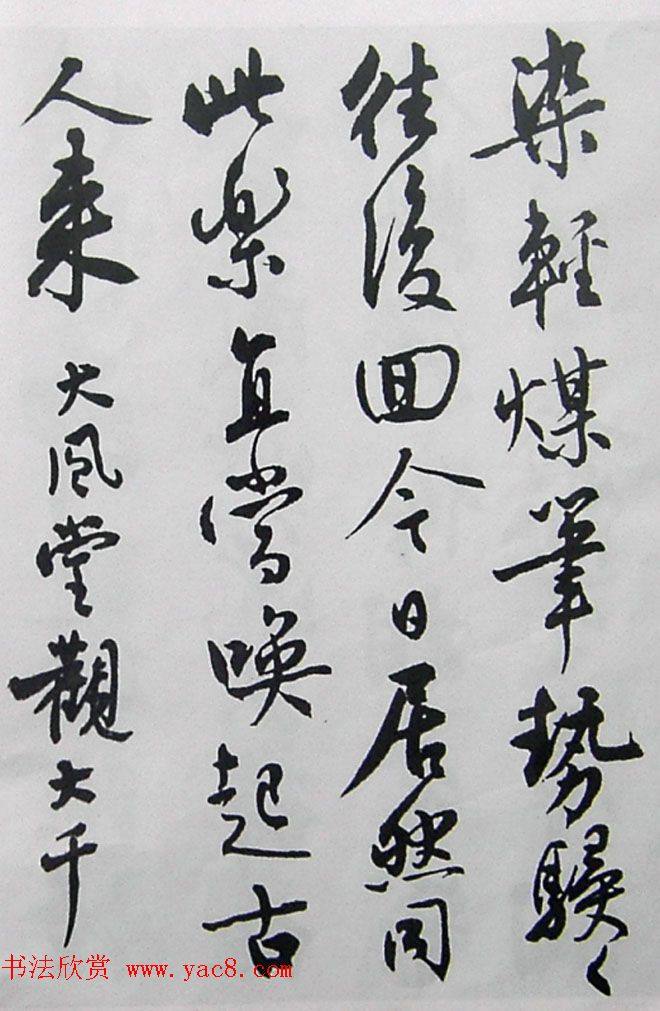 染輕煤筆勢駸〻
往復回今日居然同
此樂直當喚起古
人來 大風堂觀大千
书法欣赏 www.yac8.com